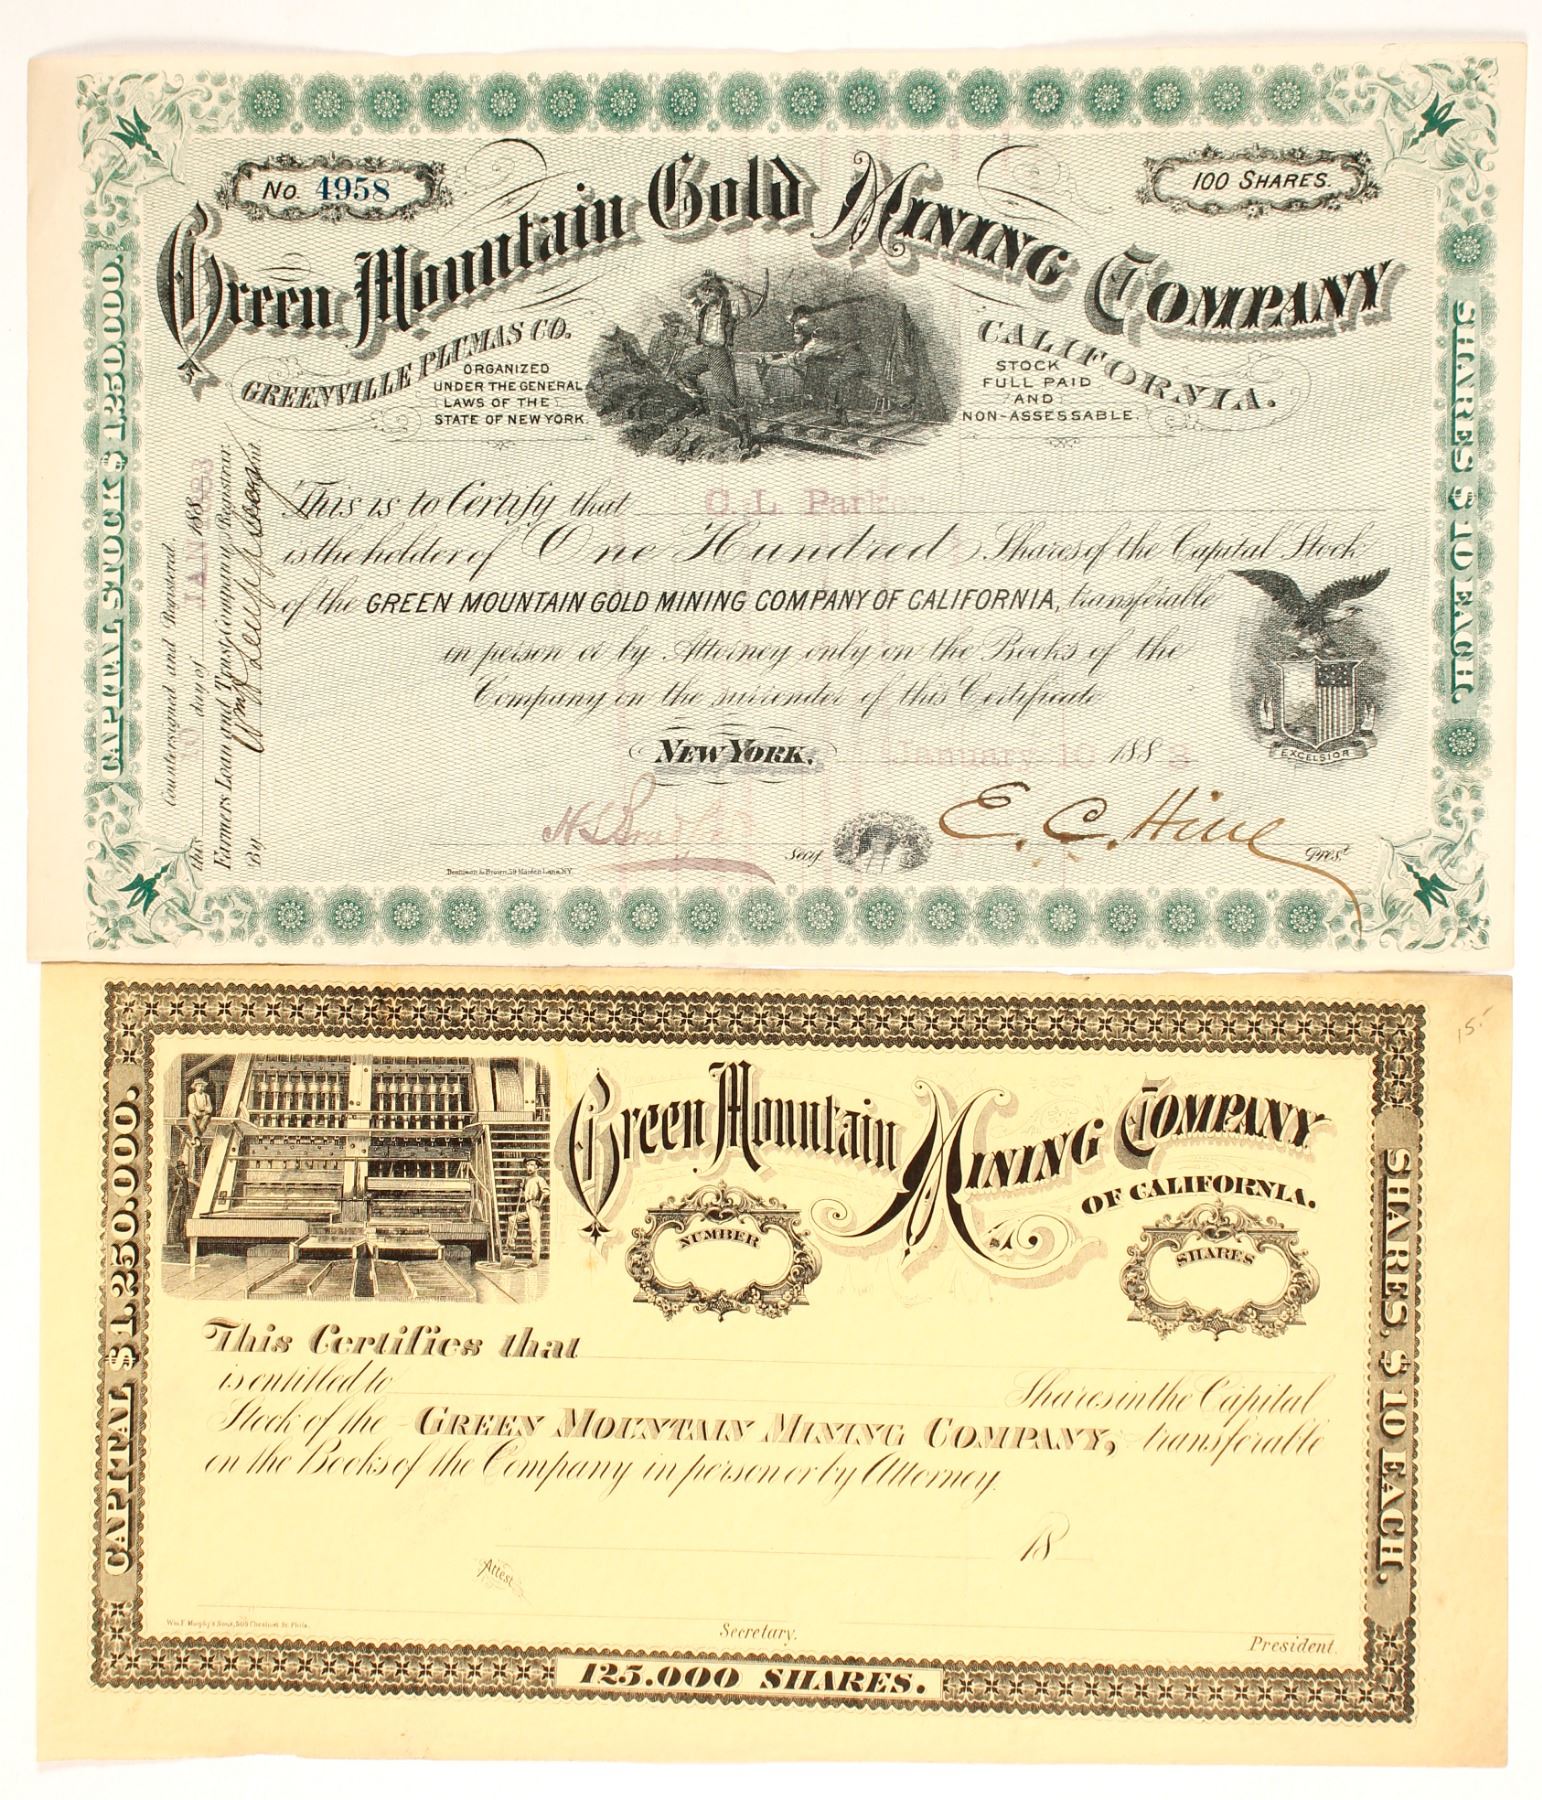 No. 4958
100 SHARES.
Green Mountain Gold Mining Company
GREENVILLE PLUMAS CO. CALIFORNIA.
ORGANIZED
UNDER THE GENERAL
LAWS OF THE
STATE OF NEW YORK.
STOCK
FULL PAID
AND
NON-ASSESSABLE.
CAPITAL STOCK $1,250,000.
SHARES $10 EACH.
Countersigned and Registered.
this day of JAN 1883
Farmers Loan and Trust Company Registrar.
By
This is to Certify that C. L. Park
is the holder of One Hundred Shares of the Capital Stock
of the GREEN MOUNTAIN GOLD MINING COMPANY OF CALIFORNIA, transferable
in person or by Attorney only on the Books of the
Company on the surrender of this Certificate
NEW YORK, January 10 1883
EXCELSIOR
Secy.
E. C. Hine Prest.
Dennison & Brown, 59 Maiden Lane, N.Y.
15.-
Green Mountain Mining Company
OF CALIFORNIA.
NUMBER
SHARES
CAPITAL $1,250,000.
SHARES, $10 EACH.
This Certifies that
is entitled to Shares in the Capital
Stock of the GREEN MOUNTAIN MINING COMPANY, transferable
on the Books of the Company in person or by Attorney.
18
Attest
Secretary.
President.
Wm. F. Murphy's Sons, 509 Chestnut St. Phila.
125.000 SHARES.